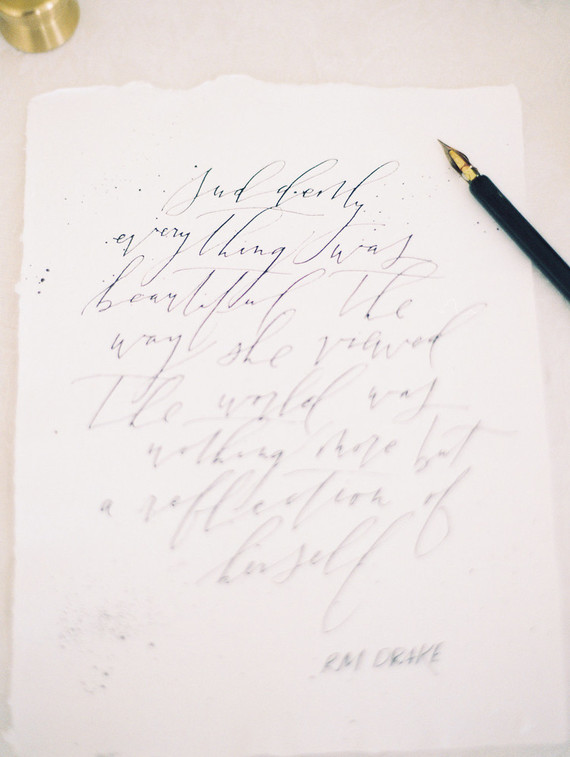 Suddenly
everything was
beautiful The
way she viewed
The world was
nothing more but
a reflection of
herself
RM DRAKE